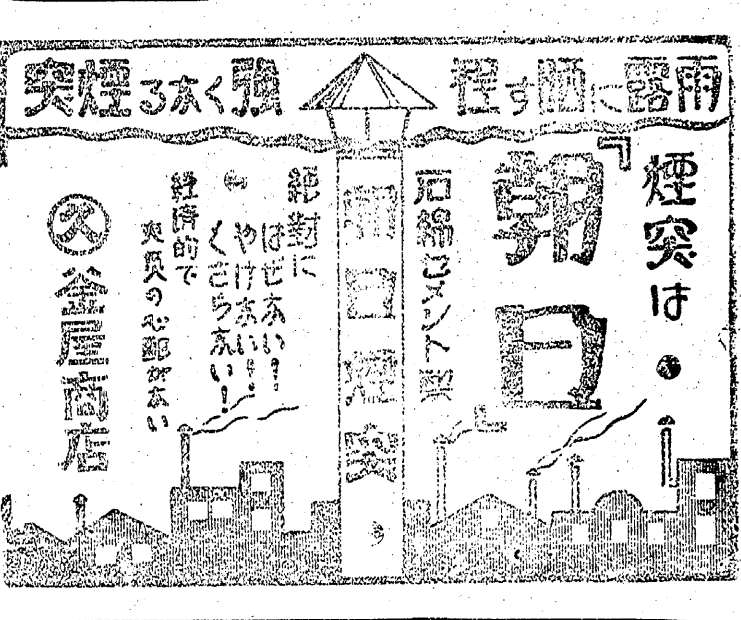 雨露に晒す程
強くなる煙突
煙突は
『朝日』
石綿セメント製
朝日煙突
絶対に
はぜない!
やけない!
くさらない!
経済的で
火災の心配がない
ス 釜屋商店